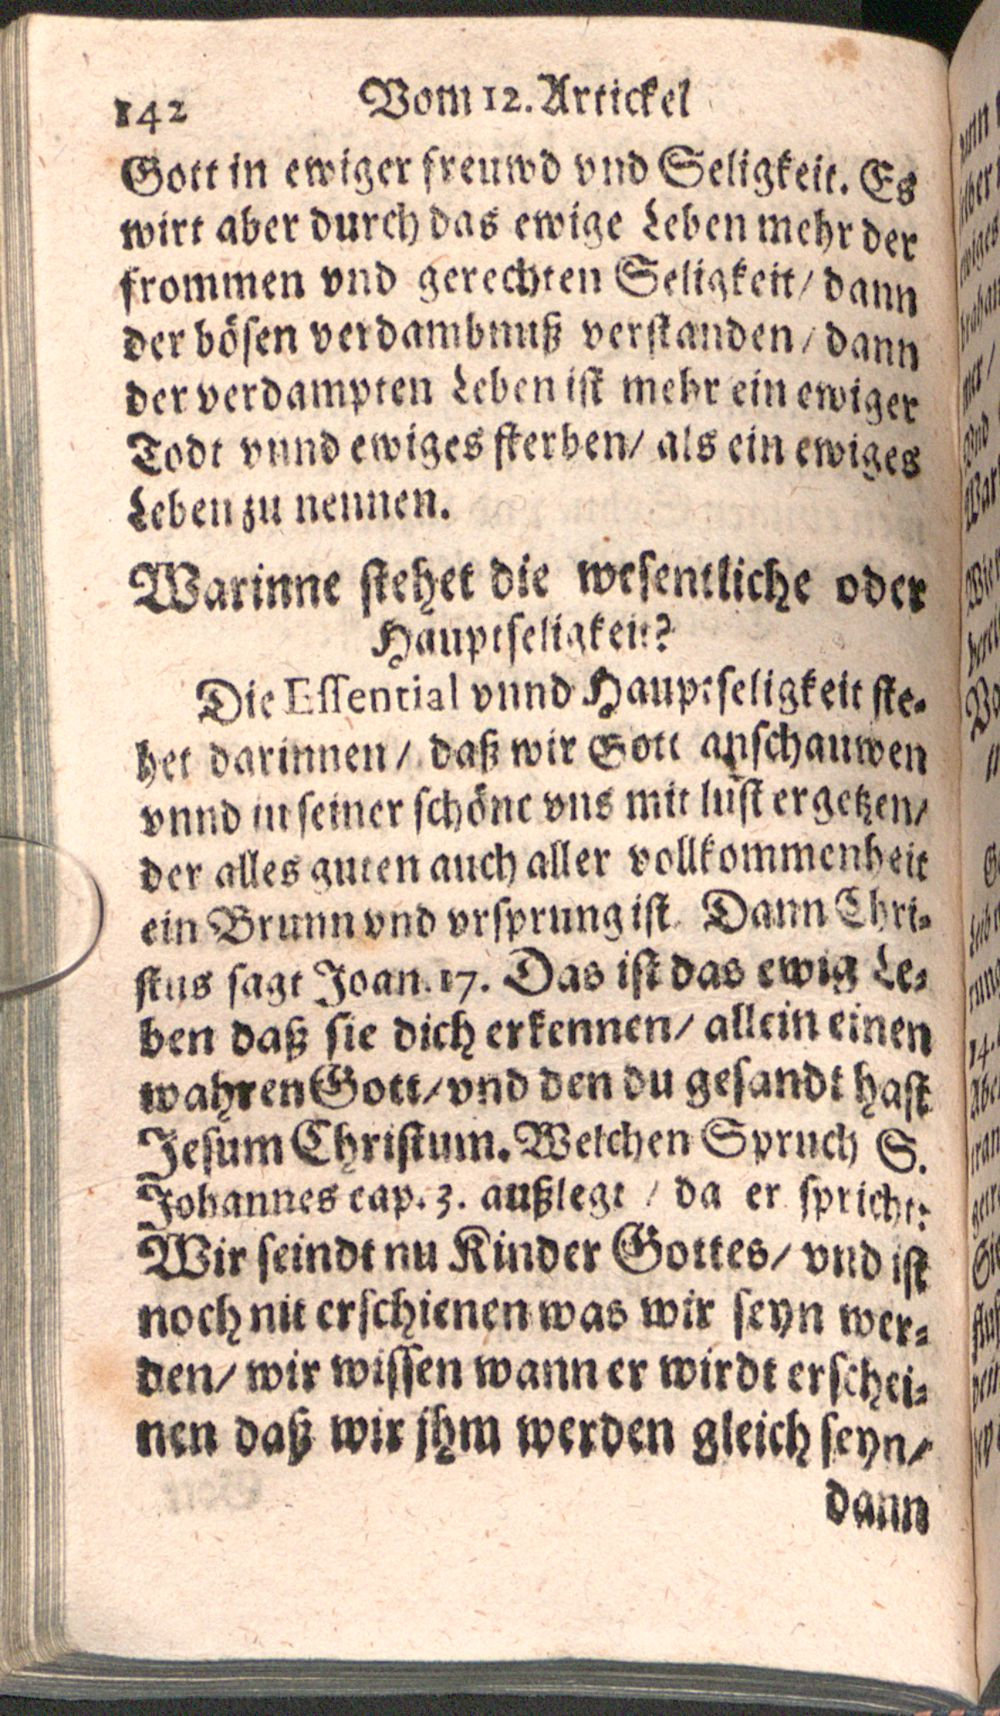 142 Vom 12. Artickel
Gott in ewiger freuwd vnd Seligkeit. Es
wirt aber durch das ewige Leben mehr der
frommen vnd gerechten Seligkeit/ dann
der bösen verdambnuß verstanden/ dann
der verdampten Leben ist mehr ein ewiger
Todt vnnd ewiges sterben/ als ein ewiges
Leben zu nennen.
Warinne stehet die wesentliche oder
Hauptseligkeit?
Die Essential vnnd Hauptseligkeit ste-
het darinnen/ daß wir Gott anschauwen
vnnd in seiner schöne vns mit lust ergetzen/
der alles guten auch aller vollkommenheit
ein Brunn vnd vrsprung ist. Dann Chri-
stus sagt Joan. 17. Das ist das ewig Le-
ben daß sie dich erkennen/ allein einen
wahren Gott/ vnd den du gesandt hast
Jesum Christum. Welchen Spruch S.
Johannes cap. 3. außlegt / da er spricht:
Wir seindt nu Kinder Gottes/ vnd ist
noch nit erschienen was wir seyn wer-
den/ wir wissen wann er wirdt erschei-
nen daß wir jhm werden gleich seyn/
dann